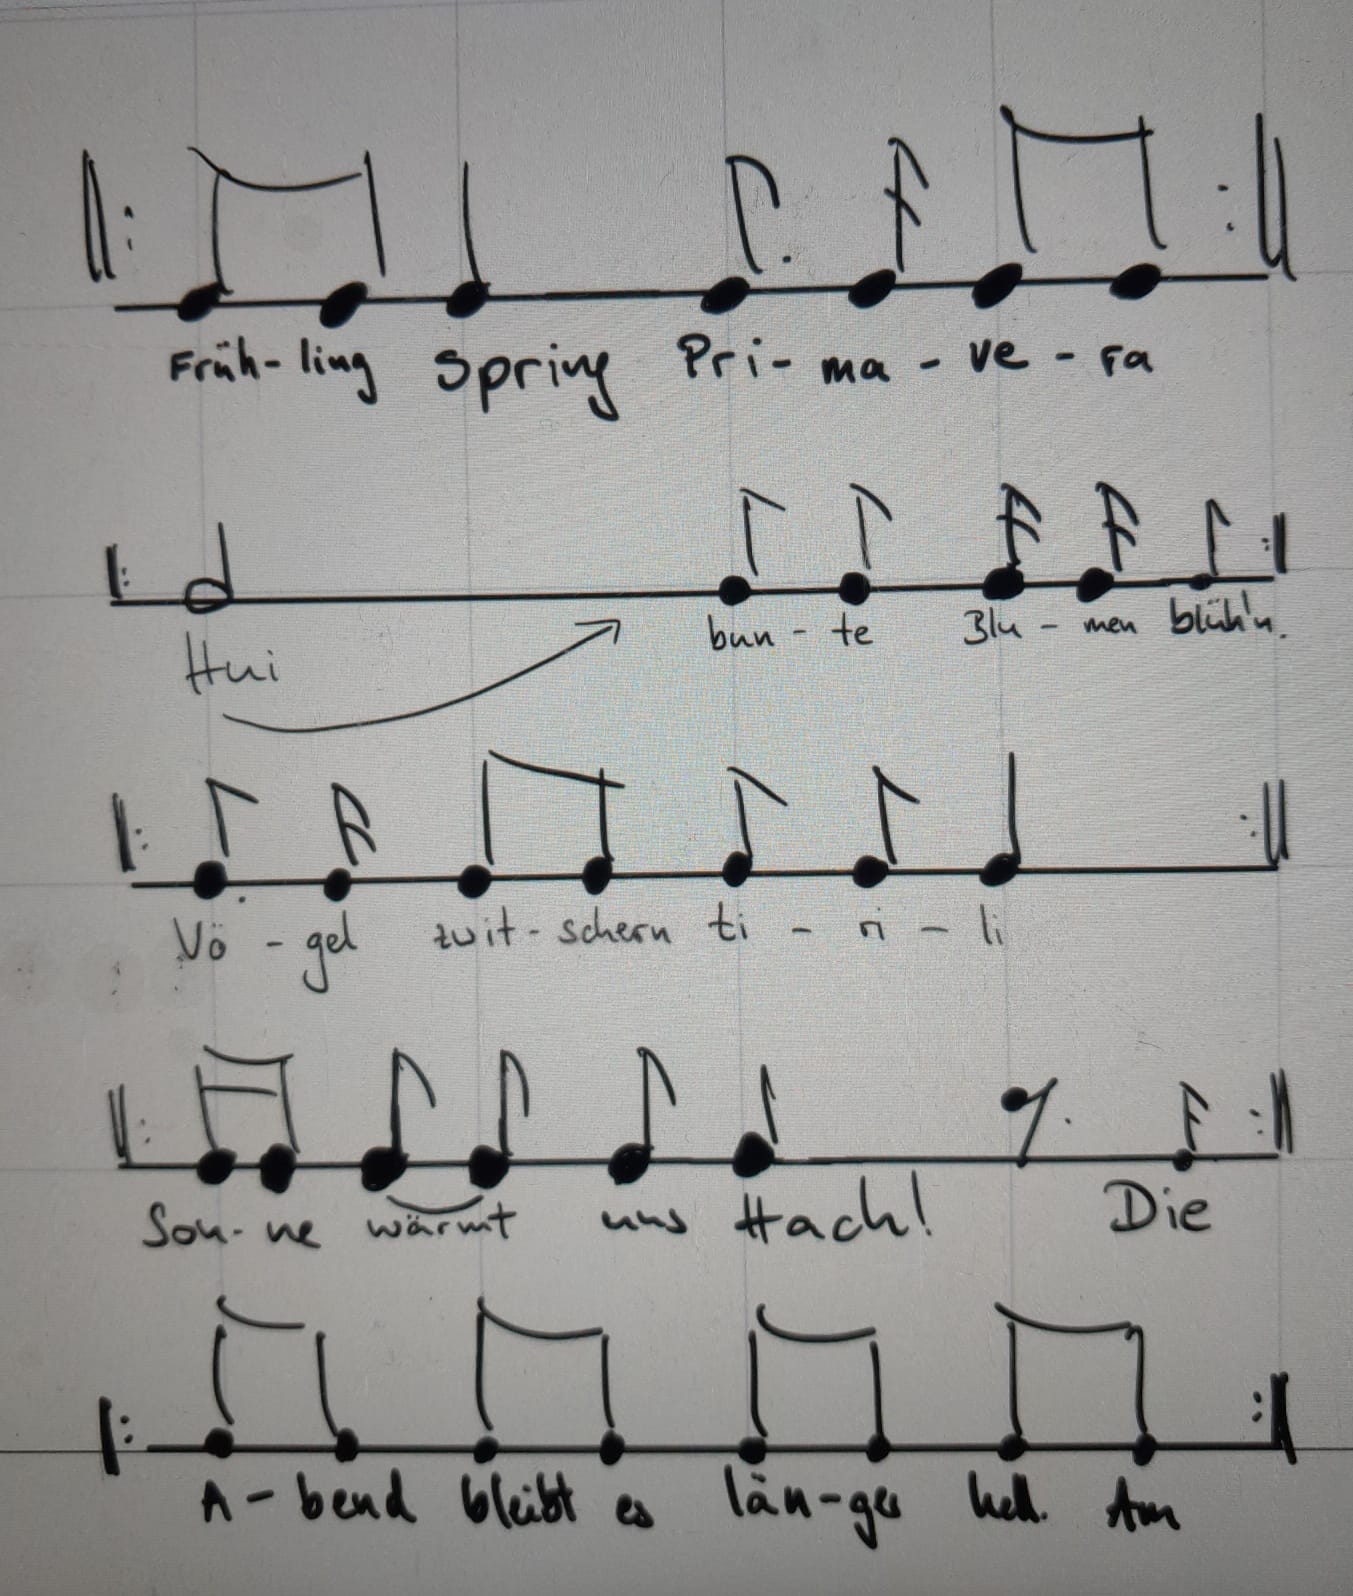 Früh-ling Spring Pri-ma-ve-ra
Hui bun-te Blu-men blüh'n.
Vö-gel zwit-schern ti-ri-li
Son-ne wärmt uns Hach! Die
A-bend bleibt es län-ger hell. Am